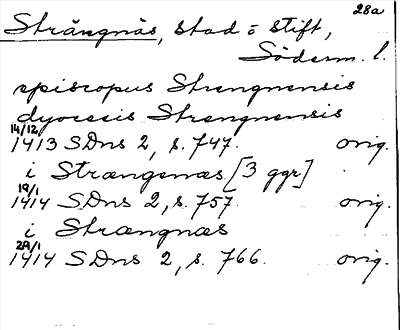 28a
Strängnäs, stad o stift,
Söderm. l.
episcopus Strengnensis
dyocesis Strengnensis
14/12 1413 SDns 2, s. 747. orig.
i Strængenæs [3 ggr]
19/1 1414 SDns 2, s. 757. orig.
i Strængnæs
29/1 1414 SDns 2, s. 766. orig.